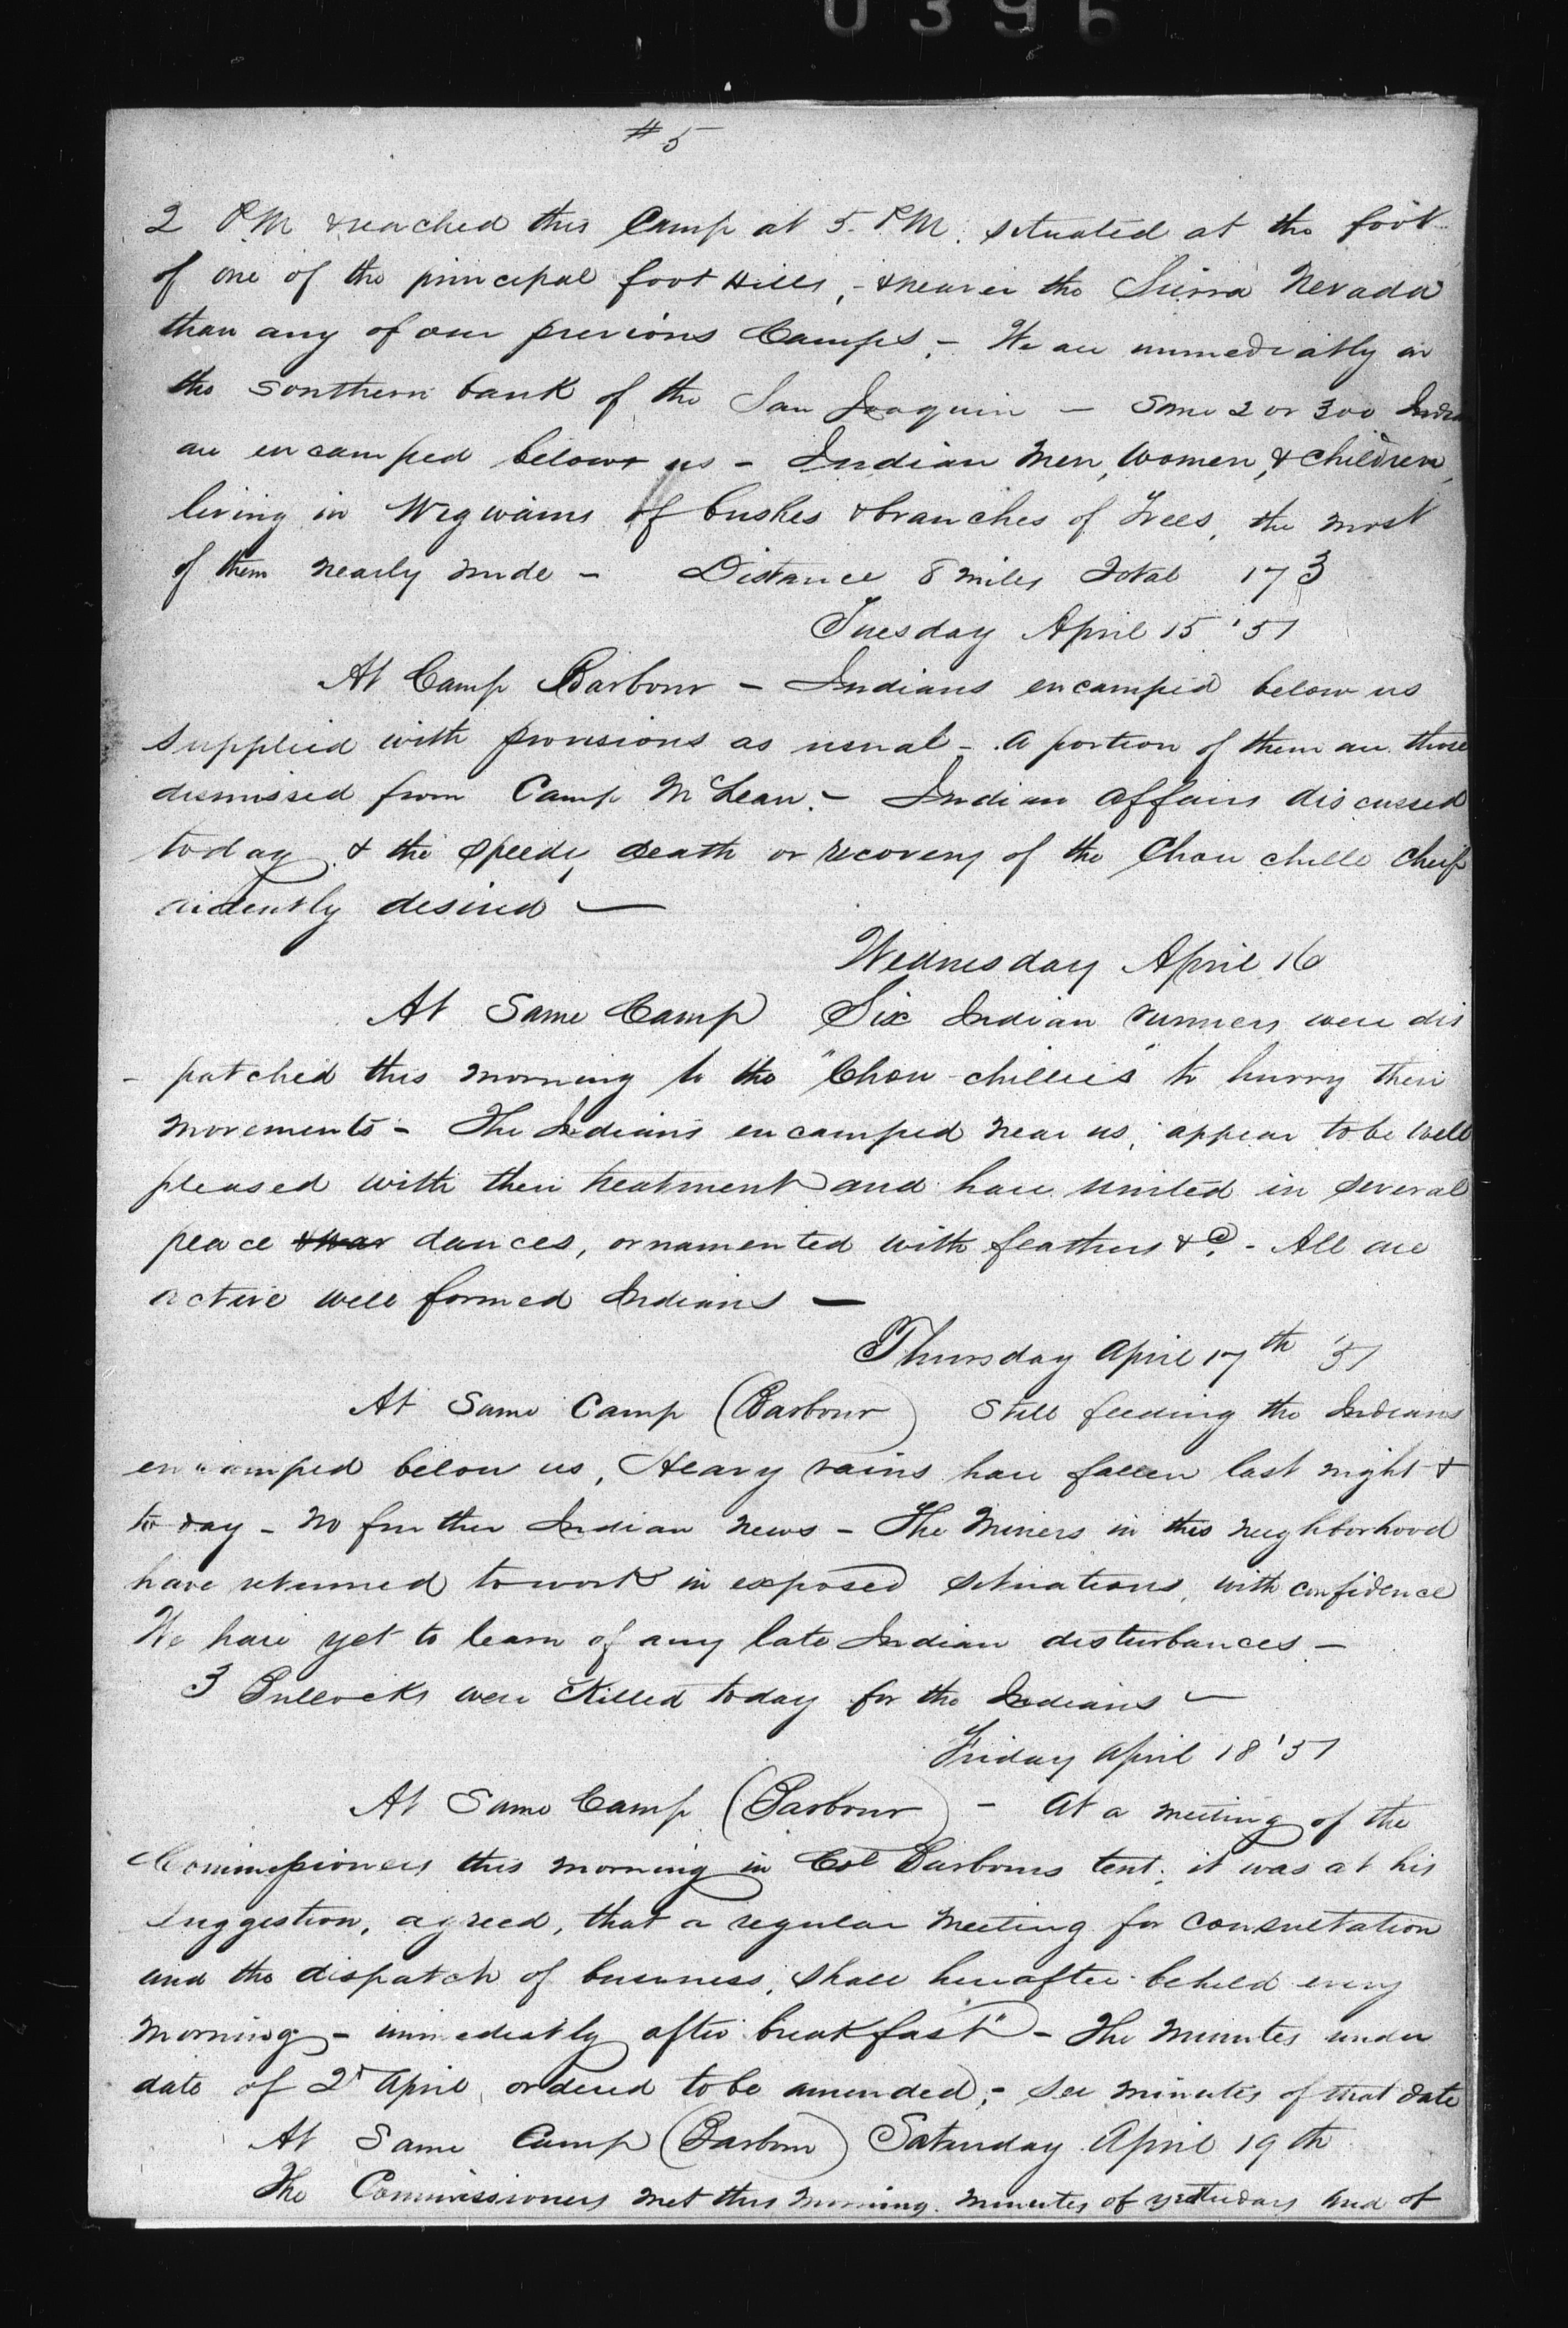 0396
#5
2 P.M. & reached this Camp at 5. P.M. situated at the foot
of one of the principal foot Hills, - & nearer the Sierra Nevada
than any of our previous Camps, - We are immediatly on
the southern bank of the San Joaquin - Some 2 or 300 Indi
are encamped below us - Indian Men, Women, & Children,
living in Wigwams of bushes & branches of Trees, the most
of them nearly nude - Distance 8 miles Total 173
Tuesday April 15 '51
At Camp Barbour - Indians encamped below us
supplied with provisions as usual - A portion of them are those
dismissed from Camp McLean. - Indian Affairs discussed
today, & the speedy death or recovery of the Chou chille Cheif
evidently desired —
Wednesday April 16
At Same Camp Six Indian runners were dis
- patched this morning to the "Chou-chillies" to hurry their
movements - The Indians encamped near us, appear to be well
pleased with their treatment and have united in several
peace & war dances, ornamented with feathers &c. - All are
active well formed Indians —
Thursday April 17th '51
At Same Camp (Barbour) Still feeding the Indians
encamped below us, Heavy rains have fallen last night &
to day - No further Indian news - The Miners in this neighborhood
have returned to work in exposed situations, with confidence
We have yet to learn of any late Indian disturbances -
3 Bullocks were Killed today for the Indians —
Friday April 18 '51
At Same Camp (Barbour) - At a meeting of the
Commissioners this morning in Col Barbours tent; it was at his
suggestion, agreed, that a regular meeting for consultation
and the dispatch of business, shall hereafter be held every
morning - immediatly after breakfast" - The Minutes under
date of 2d April, ordered to be amended; - see minutes of that date
At Same Camp (Barbour) Saturday April 19th
The Commissioners met this morning. Minutes of yesterday and of